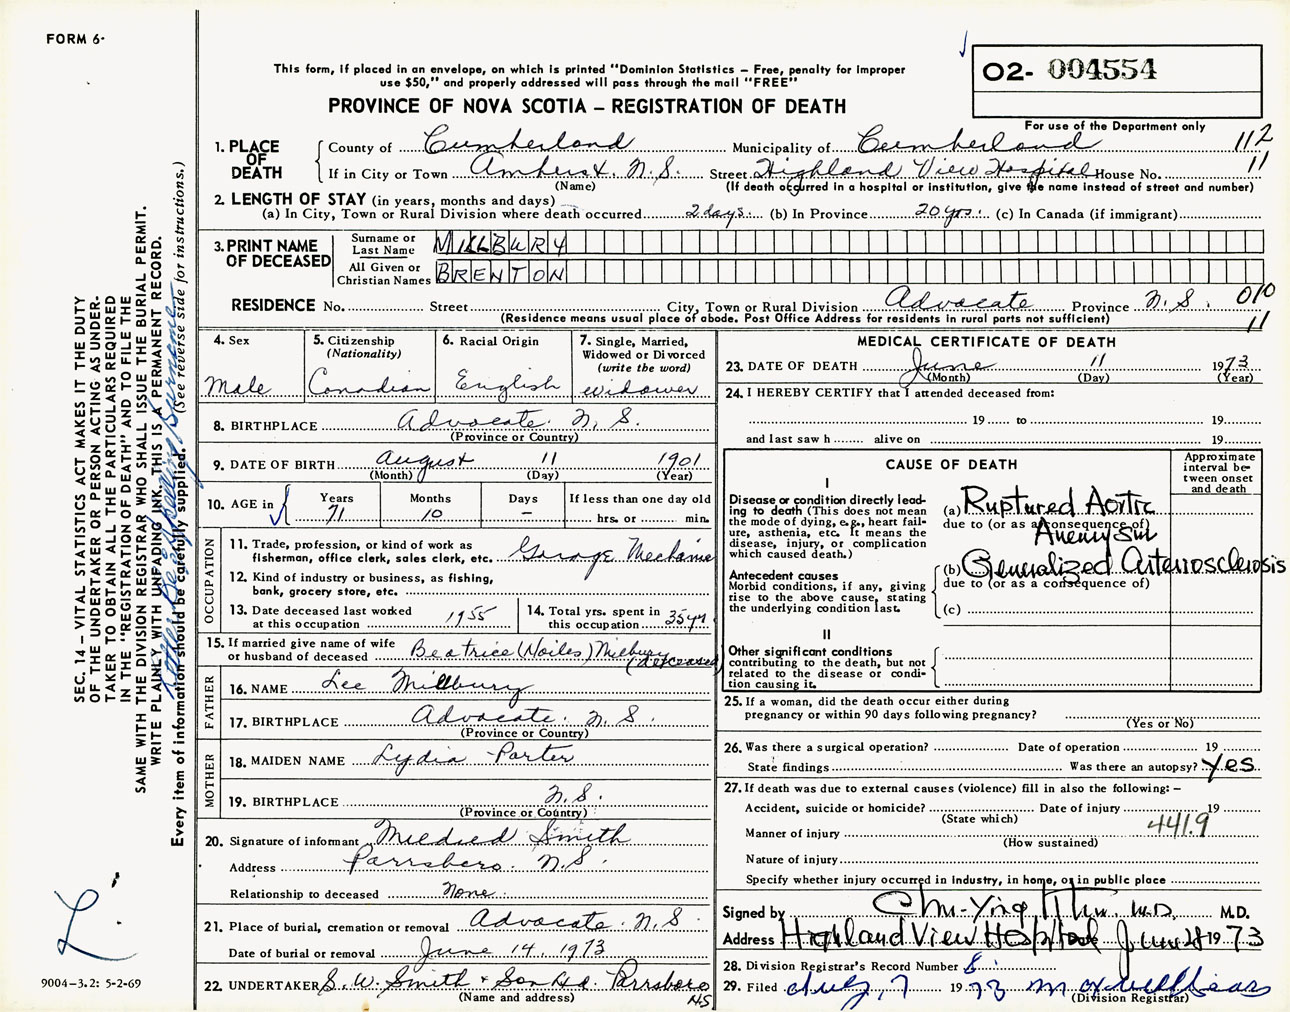 FORM 6-
This form, if placed in an envelope, on which is printed "Dominion Statistics – Free, penalty for improper
use $50," and properly addressed will pass through the mail "FREE"
PROVINCE OF NOVA SCOTIA – REGISTRATION OF DEATH
02- 004554
For use of the Department only
1. PLACE OF DEATH
County of Cumberland Municipality of Cumberland 112
If in City or Town Amherst. N.S. Street Highland View Hospital House No. 11
(Name) (If death occurred in a hospital or institution, give the name instead of street and number)
2. LENGTH OF STAY (in years, months and days)
(a) In City, Town or Rural Division where death occurred 2 days. (b) In Province 20 yrs. (c) In Canada (if immigrant)
3. PRINT NAME OF DECEASED
Surname or Last Name MILLBURY
All Given or Christian Names BRENTON
RESIDENCE No. Street City, Town or Rural Division Advocate Province N.S. 010
(Residence means usual place of abode. Post Office Address for residents in rural parts not sufficient) 11
4. Sex Male
5. Citizenship (Nationality) Canadian
6. Racial Origin English
7. Single, Married, Widowed or Divorced (write the word) widower
8. BIRTHPLACE Advocate. N.S.
(Province or Country)
9. DATE OF BIRTH August 11 1901
(Month) (Day) (Year)
10. AGE in Years 71 Months 10 Days – If less than one day old hrs. or min.
OCCUPATION
11. Trade, profession, or kind of work as
fisherman, office clerk, sales clerk, etc. Garage Mechanic
12. Kind of industry or business, as fishing,
bank, grocery store, etc.
13. Date deceased last worked
at this occupation 1955
14. Total yrs. spent in
this occupation 35 yrs
15. If married give name of wife
or husband of deceased Beatrice (Noiles) Milbury
(deceased)
FATHER
16. NAME Lee Millbury
17. BIRTHPLACE Advocate. N.S.
(Province or Country)
MOTHER
18. MAIDEN NAME Lydia Porter
19. BIRTHPLACE N.S.
(Province or Country)
20. Signature of informant Mildred Smith
Address Parrsboro. N.S.
Relationship to deceased None.
21. Place of burial, cremation or removal Advocate. N.S
Date of burial or removal June 14, 1973
22. UNDERTAKER S. W. Smith & Son Ltd. Parrsboro
NS
(Name and address)
MEDICAL CERTIFICATE OF DEATH
23. DATE OF DEATH June 11 1973
(Month) (Day) (Year)
24. I HEREBY CERTIFY that I attended deceased from:
19 to 19
and last saw h alive on 19
CAUSE OF DEATH
Approximate interval between onset and death
I
Disease or condition directly leading to death (This does not mean the mode of dying, e.g., heart failure, asthenia, etc. It means the disease, injury, or complication which caused death.)
(a) Ruptured Aortic
due to (or as a consequence of)
Aneurysm
Antecedent causes
Morbid conditions, if any, giving rise to the above cause, stating the underlying condition last.
(b) Generalized Arteriosclerosis
due to (or as a consequence of)
(c)
II
Other significant conditions
contributing to the death, but not related to the disease or condition causing it.
25. If a woman, did the death occur either during
pregnancy or within 90 days following pregnancy?
(Yes or No)
26. Was there a surgical operation? Date of operation 19
State findings Was there an autopsy? Yes
27. If death was due to external causes (violence) fill in also the following: –
Accident, suicide or homicide? Date of injury 19
(State which) 441.9
Manner of injury
(How sustained)
Nature of injury
Specify whether injury occurred in industry, in home, or in public place
Signed by Chu-Ying M.D. M.D.
Address Highland View Hospital June 1973
28. Division Registrar's Record Number 8
29. Filed Aug, 7 1973
(Division Registrar)
SEC. 14 – VITAL STATISTICS ACT MAKES IT THE DUTY
OF THE UNDERTAKER OR PERSON ACTING AS UNDER-
TAKER TO OBTAIN ALL THE PARTICULARS REQUIRED
IN THE "REGISTRATION OF DEATH" AND TO FILE THE
SAME WITH THE DIVISION REGISTRAR WHO SHALL ISSUE THE BURIAL PERMIT.
WRITE PLAINLY WITH UNFADING INK. THIS IS A PERMANENT RECORD.
Every item of information should be carefully supplied. (See reverse side for instructions.)
L
9004-3.2: 5-2-69